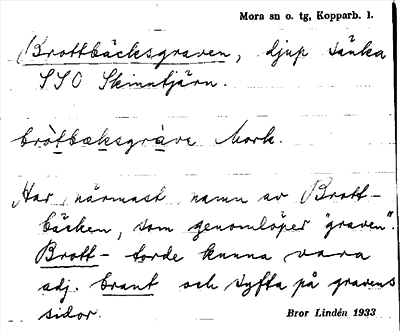 Mora sn o. tg, Kopparb. l.
Brottbäcksgraven, djup sänka
SSO Skinntjärn.
bròtbæksgràve Mork.
Har närmast namn av Brott-
bäcken, som genomlöper "graven".
Brott- torde kunna vara
adj. brant och syfta på gravens
sidor.
Bror Lindén 1933